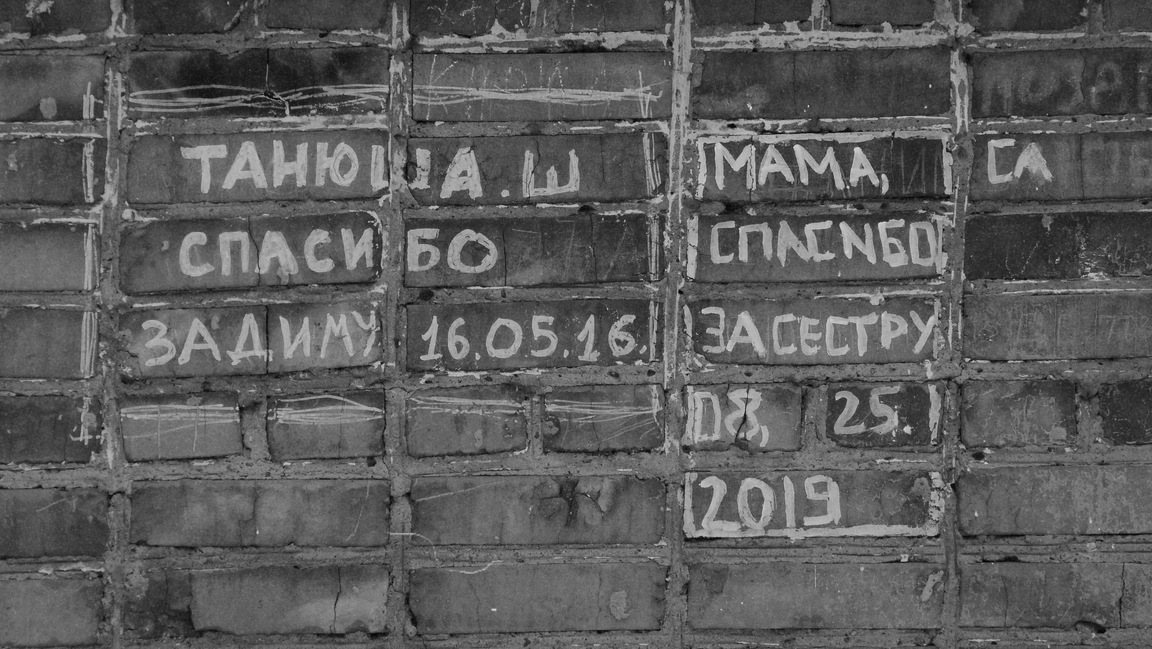 ТАНЮША.Ш
СПАСИБО
ЗА ДИМУ 16.05.16.
МАМА,
СПАСИБО
ЗА СЕСТРУ
08, 25.
2019
СА